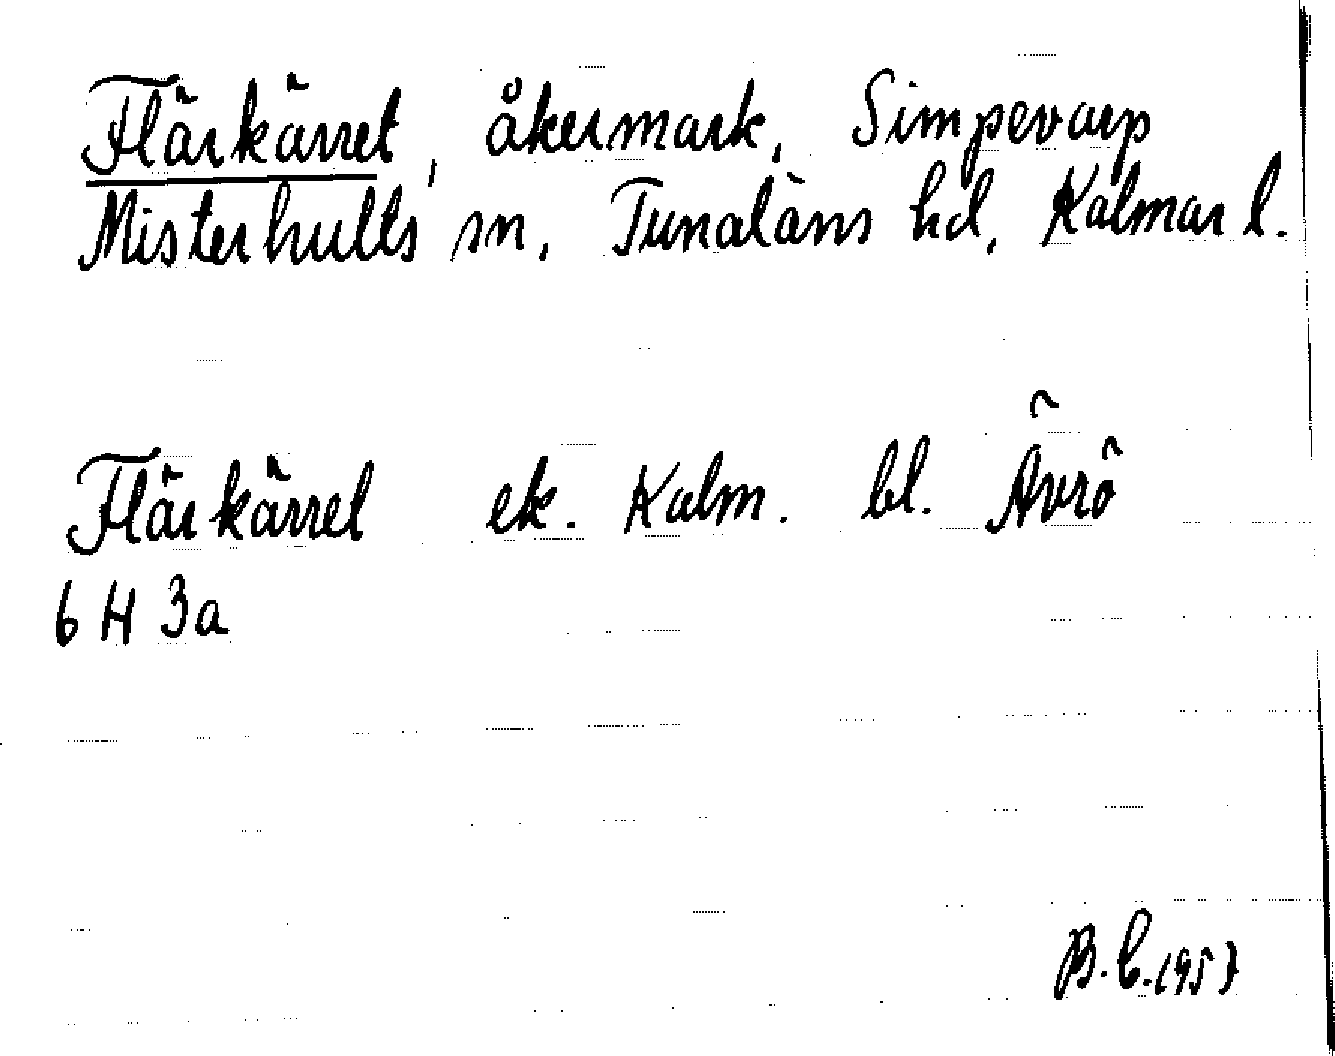 Flärkärret, åkermark, Simpevarp
Misterhults sn, Tunaläns hd, Kalmar l.
Flärkärret ek. Kalm. bl. Ävrö
6 H 3a
B.C. 1957